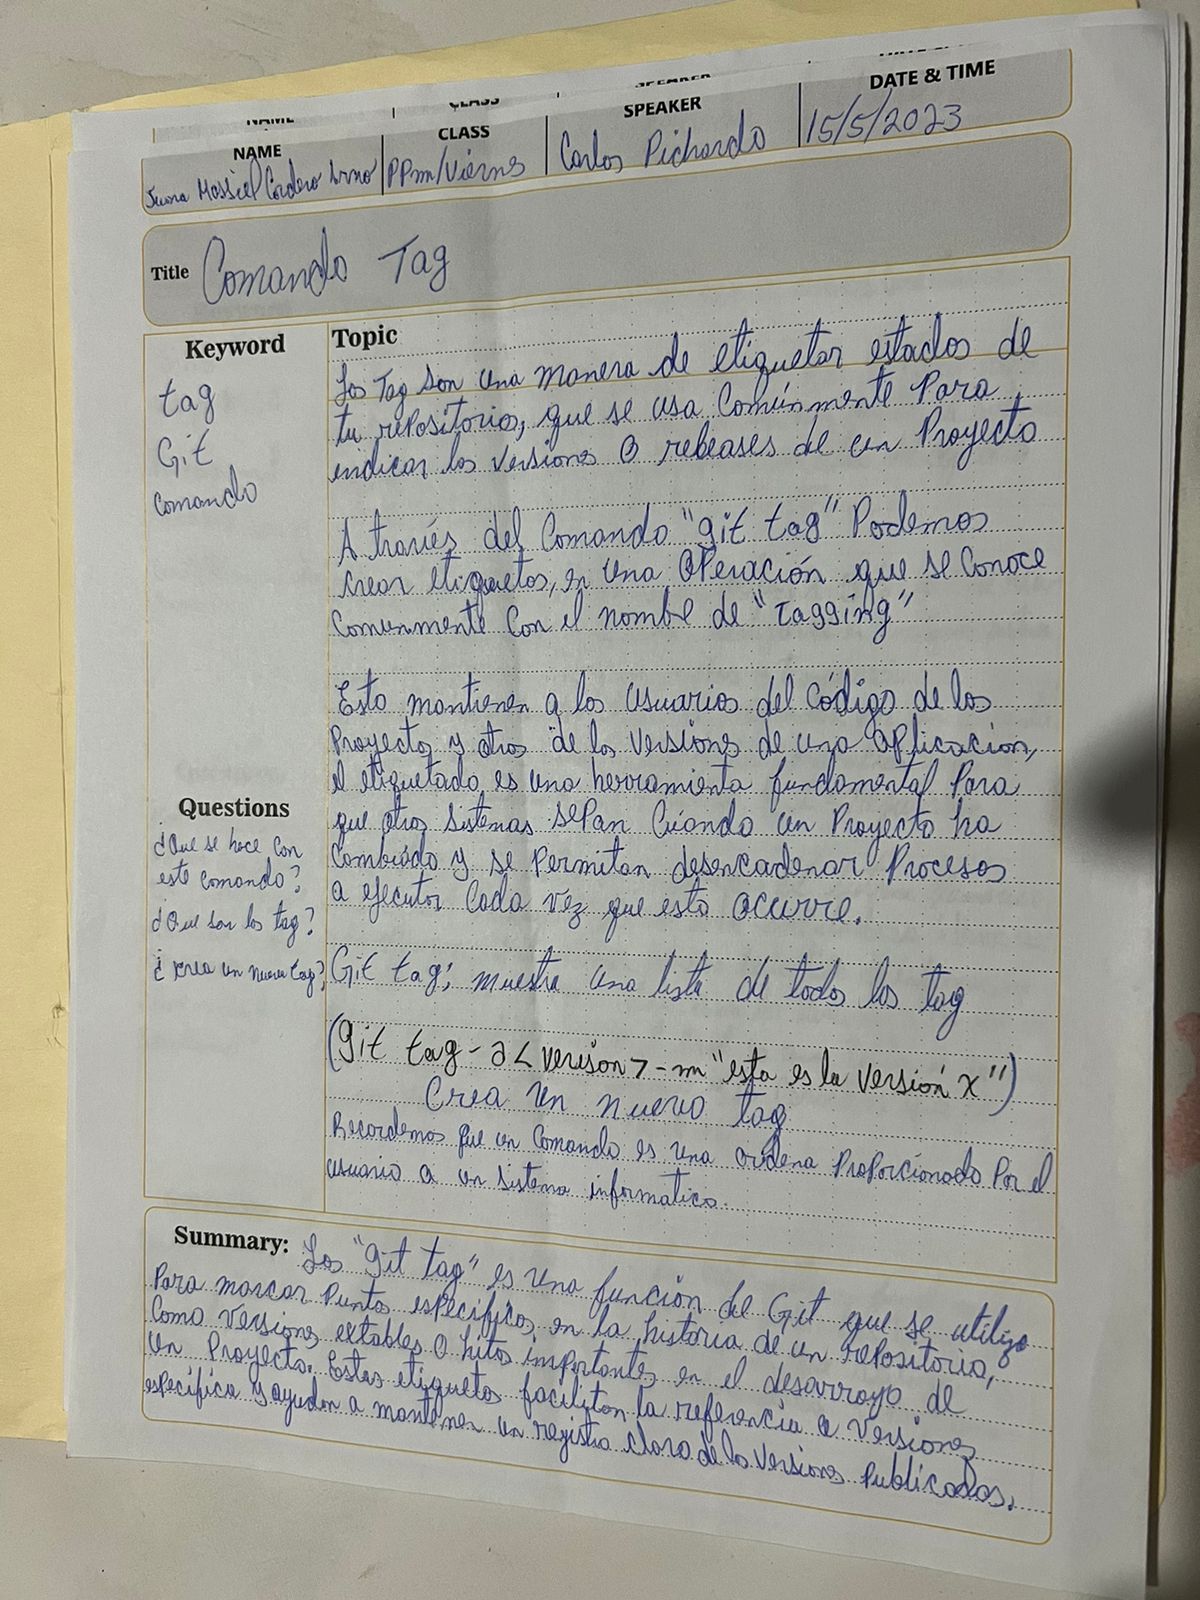 NAME
CLASS
SPEAKER
NAME
CLASS
SPEAKER
DATE & TIME
Massiel Cordero
PPm/Viernes
Carlos Pichardo
15/5/2023
Title Comando Tag
Keyword
tag
Git
Comando
Topic
Los Tag son una manera de etiquetar estados de
tu repositorio, que se usa Comúnmente Para
indicar las versiones O rebeases de un Proyecto
A través del Comando "git tag" Podemos
crear etiquetas, en una Operación que se Conoce
Comunmente Con el nombre de "Tagging"
Esto mantienen a los usuarios del Código de los
Proyectos y otros de las versiones de una aplicación,
el etiquetado es una herramienta fundamental Para
que otros sistemas sepan Cuando un Proyecto ha
Cambiado y se Permitan desencadenar Procesos
a ejecutar Cada vez que esto ocurre.
Git tag; muestra una lista de todos los tag
(git tag - a < verison > - m "esta es la versión x")
Crea un nuevo tag
Recordemos que un Comando es una ordena Proporcionado Por el
usuario a un sistema informatico.
Questions
¿Que se hace Con
este comando?
¿Que son los tag?
¿ crea un nuevo tag?
Summary: Los "git tag" es una función de Git que se utiliza
Para marcar Puntos especificos en la historia de un repositorio,
Como versiones estables O hitos importantes en el desarroyo de
Un Proyecto. Estas etiquetas facilitan la referencia a versiones
especifica y ayudan a mantener un registro claro de las versiones Publicadas.